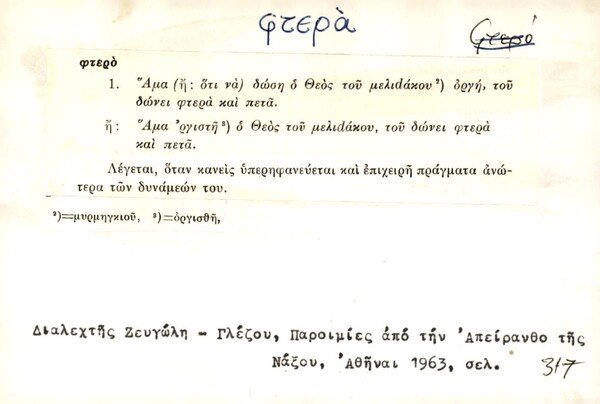 φτερὰ
φτερό
φτερὸ
1. Ἅμα (ἤ: ὅτι νὰ) δώση ὁ Θεὸς τοῦ μελιdάκου²) ὀργή, τοῦ
δώνει φτερὰ καὶ πετᾶ.
ἤ: Ἅμα ’ργιστῆ³) ὁ Θεὸς τοῦ μελιdάκου, τοῦ δώνει φτερὰ
καὶ πετᾶ.
Λέγεται, ὅταν κανεὶς ὑπερηφανεύεται καὶ ἐπιχειρῆ πράγματα ἀνώ-
τερα τῶν δυνάμεών του.
²)=μυρμηγκιοῦ, ³)=ὀργισθῆ,
Διαλεχτῆς Ζευγώλη – Γλέζου, Παροιμίες ἀπό τήν ’Απείρανθο τῆς
Νάξου, ’Αθῆναι 1963, σελ. 317